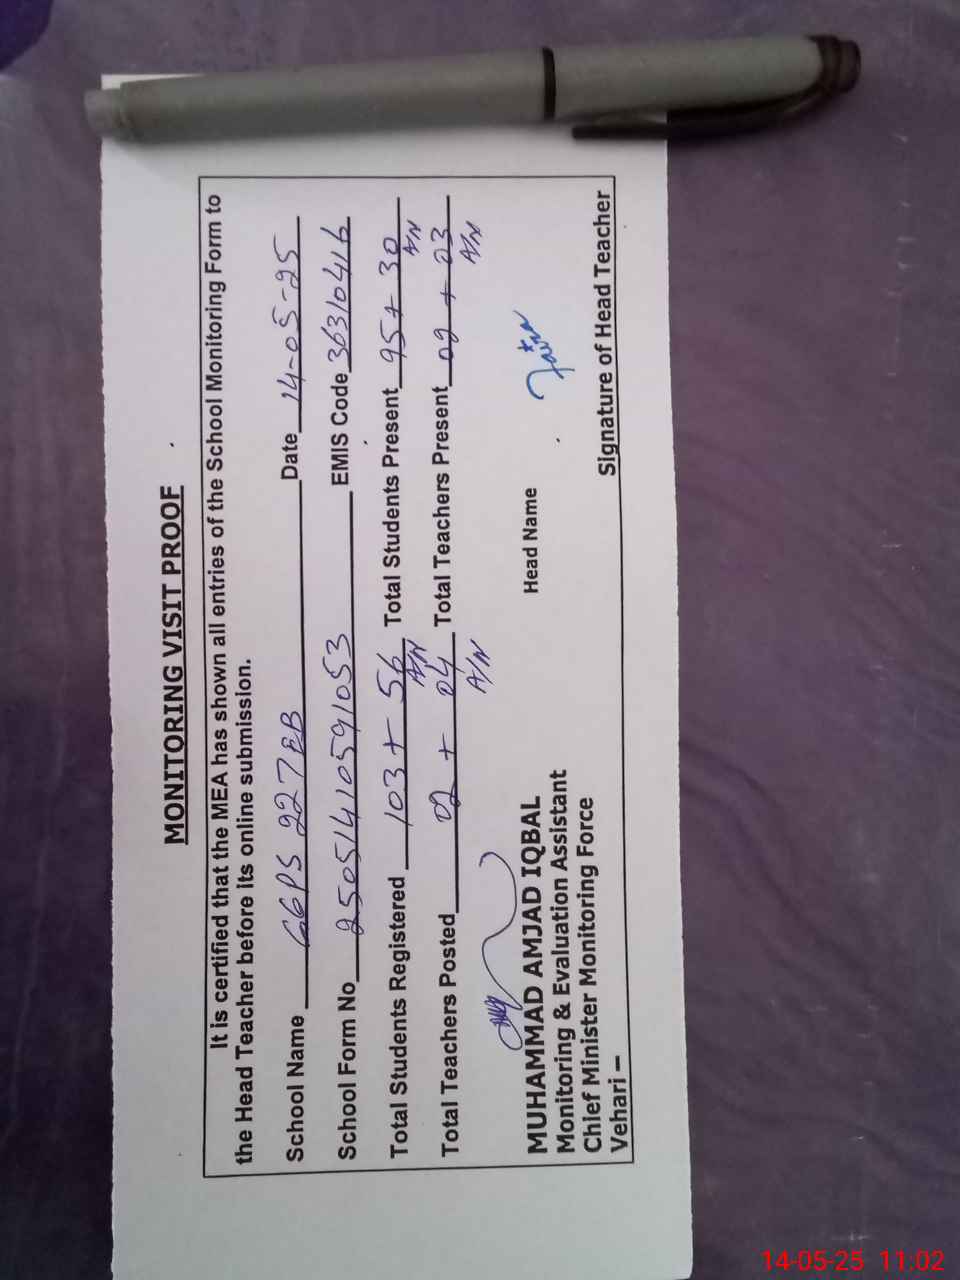 MONITORING VISIT PROOF
It is certified that the MEA has shown all entries of the School Monitoring Form to
the Head Teacher before its online submission.
School Name GGPS 227EB Date 14-05-25
School Form No 25051410591053 EMIS Code 36310416
Total Students Registered 103 + 56 Total Students Present 95 + 30
A/N A/N
Total Teachers Posted 02 + 04 Total Teachers Present 02 + 03
A/N A/N
MUHAMMAD AMJAD IQBAL Head Name
Monitoring & Evaluation Assistant
Chief Minister Monitoring Force
Vehari – Signature of Head Teacher
14-05-25 11:02